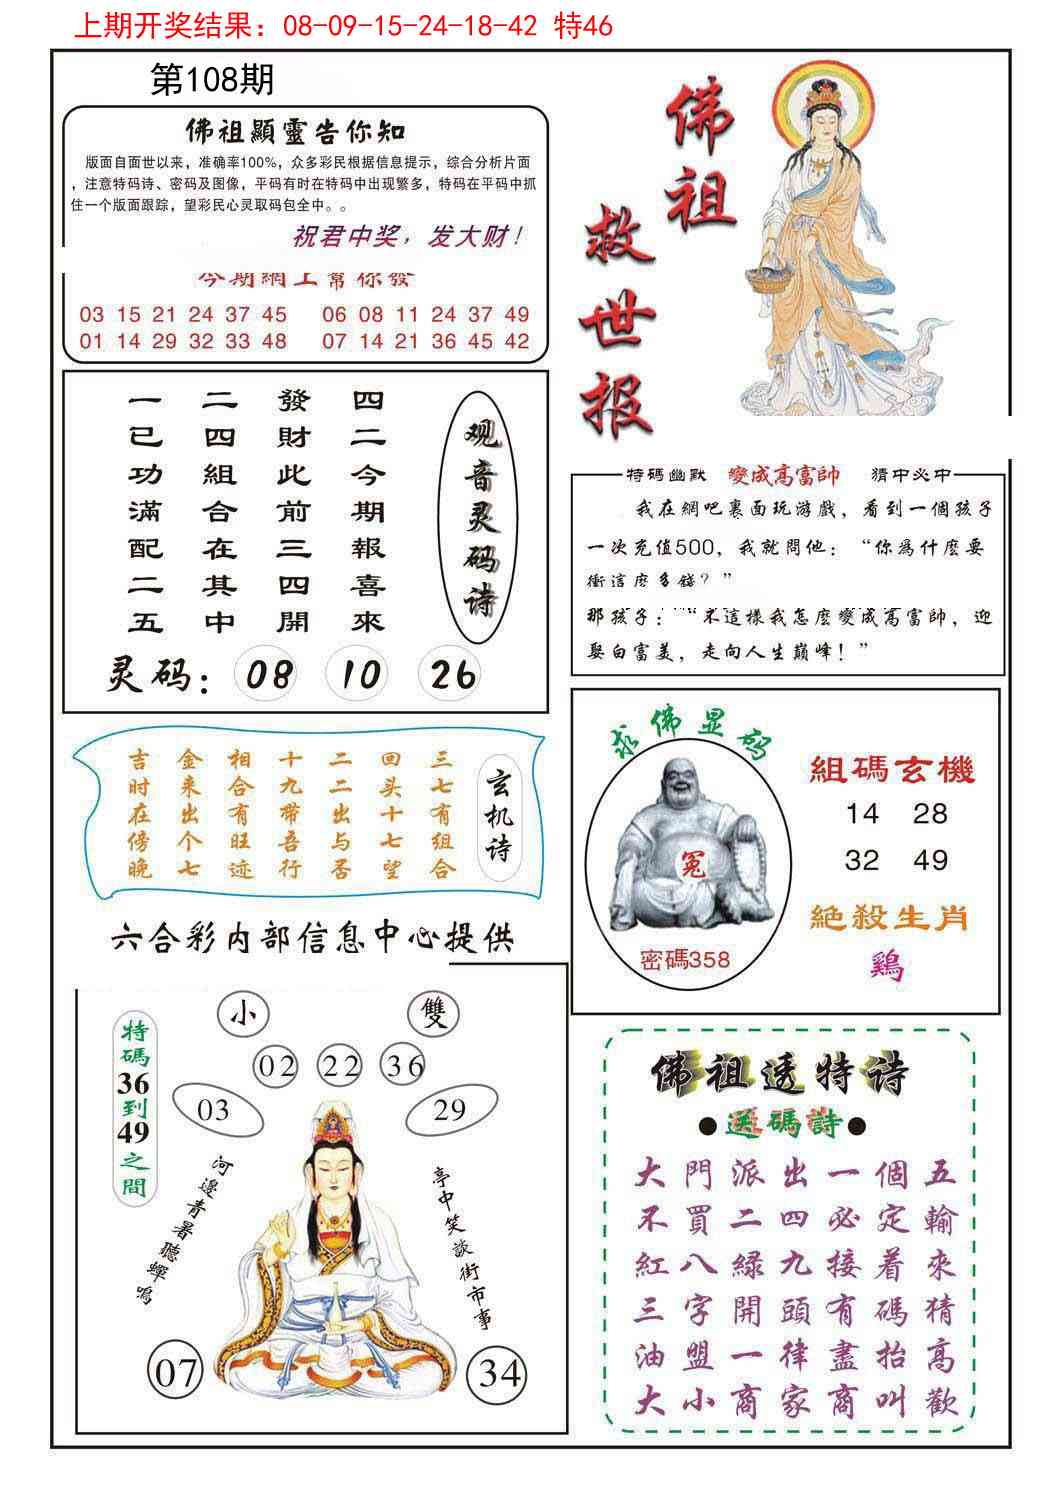 上期开奖结果：08-09-15-24-18-42 特46
第108期
佛祖顯靈告你知
版面自面世以来，准确率100%，众多彩民根据信息提示，综合分析片面
，注意特码诗、密码及图像，平码有时在特码中出现繁多，特码在平码中抓
住一个版面跟踪，望彩民心灵取码包全中。。
祝君中奖，发大财！
今期網上幫你發
03 15 21 24 37 45 06 08 11 24 37 49
01 14 29 32 33 48 07 14 21 36 45 42
佛祖
救世报
四二今期報喜來
發財此前三四開
二四組合在其中
一已功滿配二五
观音灵码诗
灵码：08 10 26
特碼幽默 變成高富帥 猜中必中
我在網吧裏面玩游戲，看到一個孩子
一次充值500，我就問他：“你爲什麽要
衝這麽多錢？”
那孩子：“不這樣我怎麽變成高富帥，迎
娶白富美，走向人生巔峰！”
玄机诗
三七有组合
回头十七望
二二出与否
十九带吾行
相合有旺迹
金来出个七
吉时在傍晚
六合彩内部信息中心提供
求佛显码
冤
密碼358
組碼玄機
14 28
32 49
絕殺生肖
鷄
特碼36到49之間
小 雙
02 22 36
03 29
河邊青暑聽蟬鳴
亭中笑談街市事
07 34
佛祖透特诗
●送碼詩●
大門派出一個五
不買二四必定輸
紅八綠九接着來
三字開頭有碼猜
油盟一律盡抬高
大小商家商叫歡